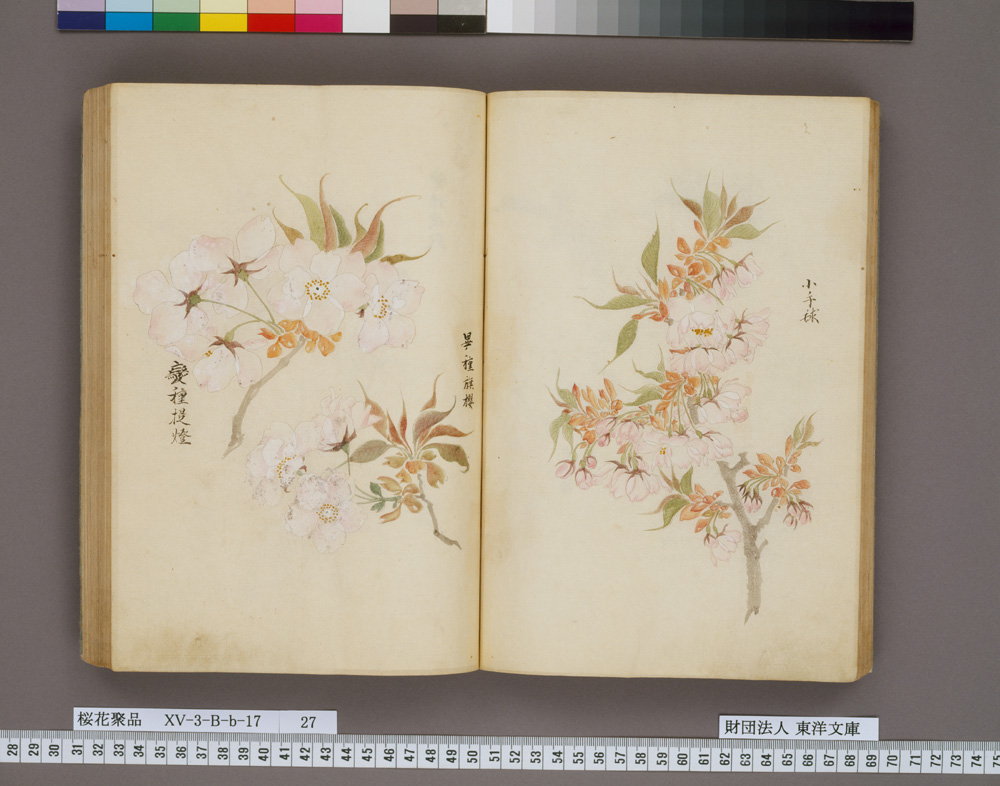 小手毬
異種旗櫻
變種提燈
桜花聚品 XV-3-B-b-17 27
財団法人 東洋文庫
28 29 30 31 32 33 34 35 36 37 38 39 40 41 42 43 44 45 46 47 48 49 50 51 52 53 54 55 56 57 58 59 60 61 62 63 64 65 66 67 68 69 70 71 72 73 74 75